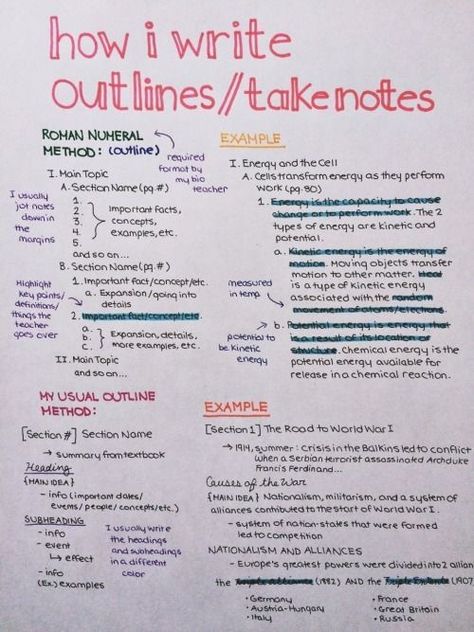 how i write
outlines//take notes
ROMAN NUMERAL
METHOD: (outline)
required
format by
my bio
teacher
I. Main Topic
A. Section Name (pg.#)
1.
2.
3.
4.
5.
Important facts,
concepts,
examples, etc.
and so on...
I usually
jot notes
down in
the
margins
B. Section Name (pg.#)
1. Important fact/concept/etc.
a. Expansion/going into
details
2. Important fact/concept/etc.
a.
b.
c.
Expansion, details,
more examples, etc.
II. Main Topic
and so on...
Highlight
key points/
definitions/
things the
teacher
goes over
EXAMPLE
I. Energy and the Cell
A. Cells transform energy as they perform
work (pg.80)
1. Energy is the capacity to cause
change or to perform work. The 2
types of energy are kinetic and
potential.
a. Kinetic energy is the energy of
motion. Moving objects transfer
motion to other matter. Heat
is a type of kinetic energy
associated with the random
movement of atoms/electrons.
b. Potential energy is energy that
is a result of its location or
structure. Chemical energy is the
potential energy available for
release in a chemical reaction.
measured
in temp
potential to
be kinetic
energy
MY USUAL OUTLINE
METHOD:
[Section #] Section Name
→ summary from textbook
Heading
{MAIN IDEA}
- info (important dates/
events/people/concepts/etc.)
SUBHEADING
- info
- event
↳ effect
- info
(Ex.) examples
I usually write
the headings
and subheadings
in a different
color
EXAMPLE
[Section 1] The Road to World War I
→ 1914, summer: crisis in the Balkins led to conflict
when a Serbian terrorist assassinated Archduke
Francis Ferdinand...
Causes of the War
{MAIN IDEA} Nationalism, militarism, and a system of
alliances contributed to the start of World War I.
- system of nation-states that were formed
led to competition
NATIONALISM AND ALLIANCES
- Europe's greatest powers were divided into 2 allian
the Triple Alliance (1882) AND the Triple Entente (1907
• Germany
• Austria-Hungary
• Italy
• France
• Great Britain
• Russia